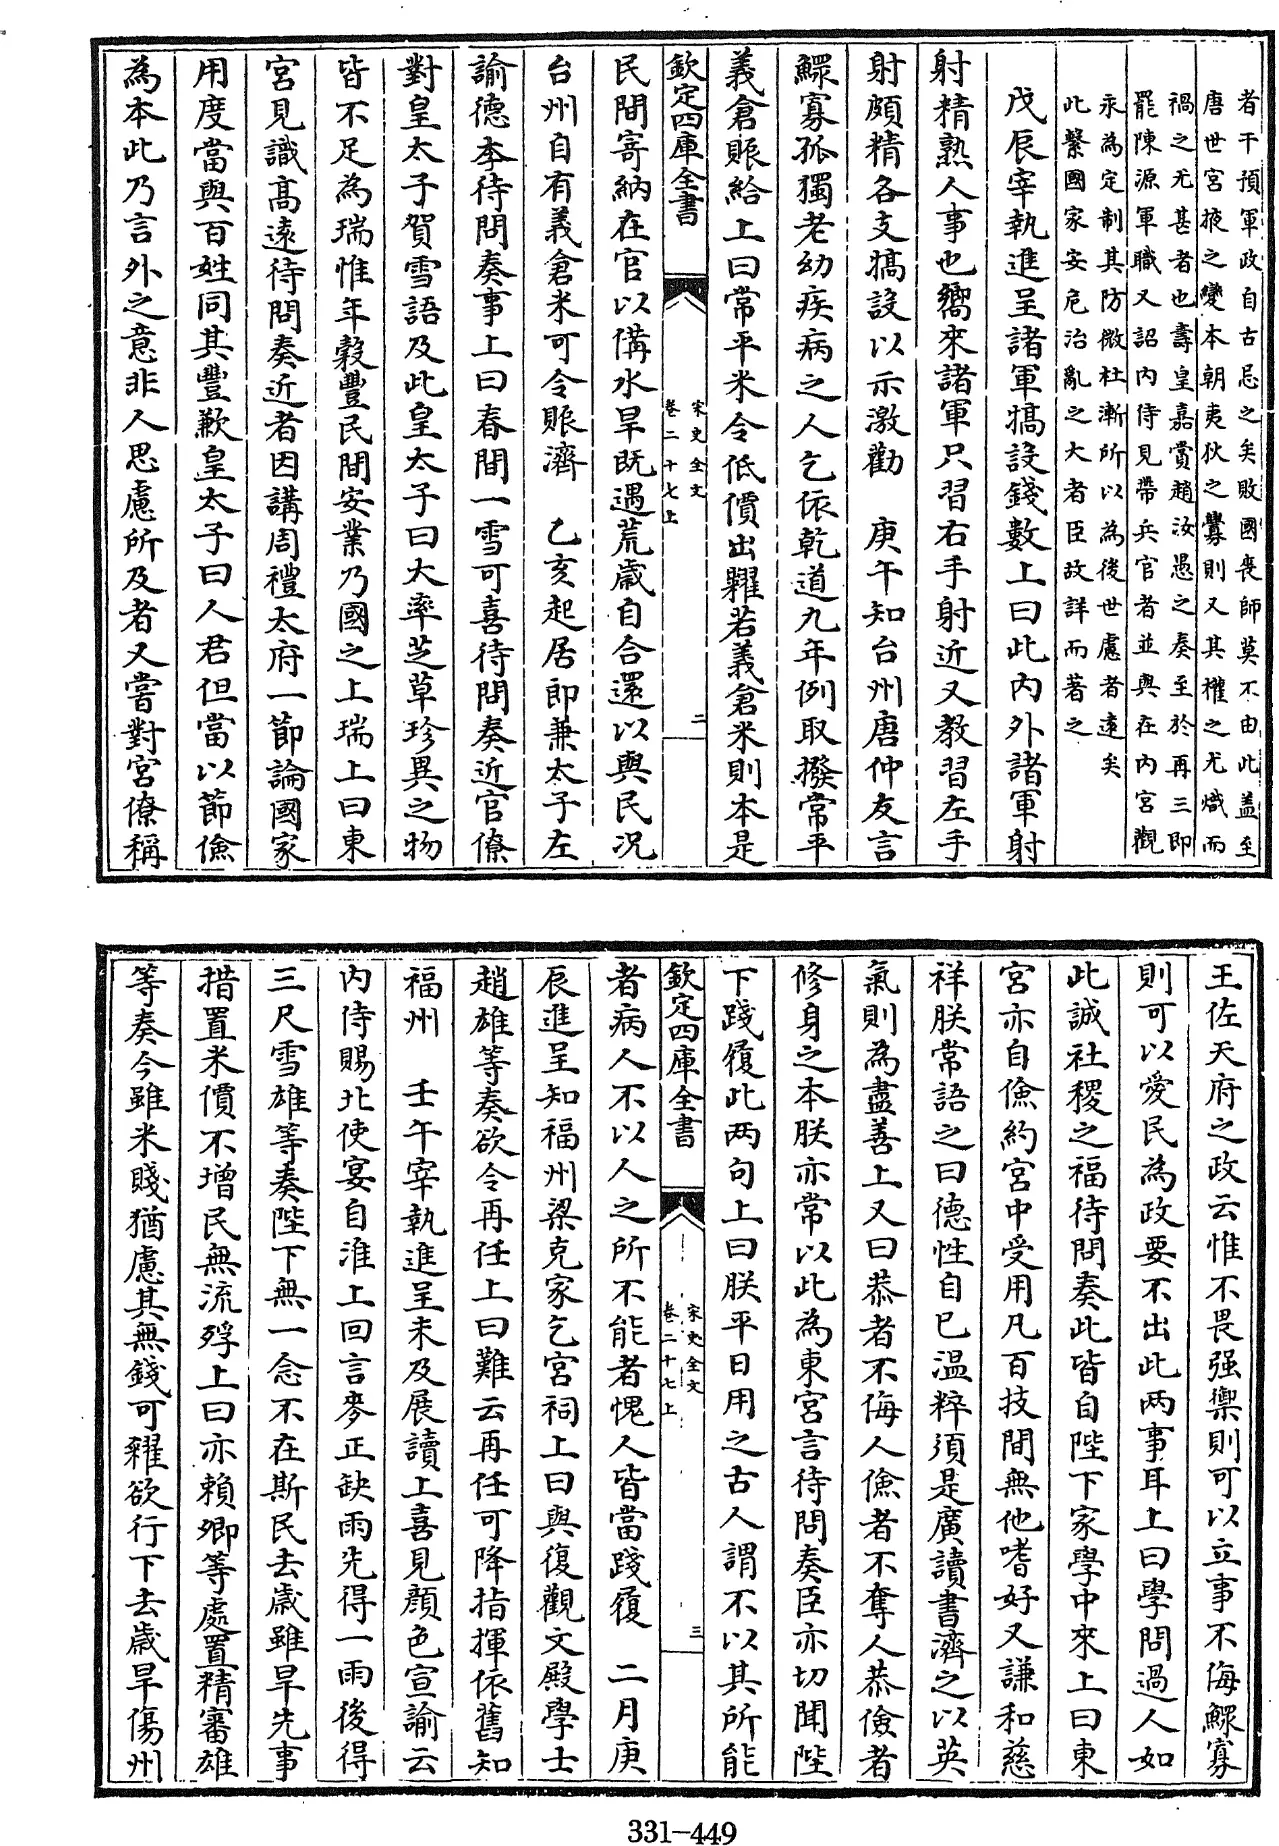 者干預軍政自古忌之矣敗國喪師莫不由此盖至
唐世宮掖之變本朝夷狄之釁則又其權之尤熾而
禍之尤甚者也壽皇嘉賞趙汝愚之奏至於再三即
罷陳源軍職又詔内侍見帶兵官者並與在内宮觀
永為定制其防微杜漸所以為後世慮者逺矣
此繫國家安危治亂之大者臣故詳而著之
戊辰宰執進呈諸軍犒設錢數上曰此内外諸軍射
射精熟人事也嚮來諸軍只習右手射近又教習左手
射頗精各支犒設以示激勸　庚午知台州唐仲友言
鰥寡孤獨老幼疾病之人乞依乾道九年例取撥常平
義倉賑給上曰常平米令低價出糶若義倉米則本是
欽定四庫全書
宋史全文
卷二十七上
二
民間寄納在官以備水旱既遇荒歲自合還以與民况
台州自有義倉米可令賑濟　乙亥起居郎兼太子左
諭德李待問奏事上曰春間一雪可喜待問奏近官僚
對皇太子賀雪語及此皇太子曰大率芝草珍異之物
皆不足為瑞惟年穀豐民間安業乃國之上瑞上曰東
宮見識髙逺待問奏近者因講周禮太府一節論國家
用度當與百姓同其豐歉皇太子曰人君但當以節儉
為本此乃言外之意非人思慮所及者又嘗對宮僚稱
王佐天府之政云惟不畏强禦則可以立事不侮鰥寡
則可以愛民為政要不出此两事耳上曰學問過人如
此誠社稷之福待問奏此皆自陛下家學中來上曰東
宮亦自儉約宮中受用凡百技間無他嗜好又謙和慈
祥朕常語之曰德性自已温粹須是廣讀書濟之以英
氣則為盡善上又曰恭者不侮人儉者不奪人恭儉者
修身之本朕亦常以此為東宮言待問奏臣亦切聞陛
下踐履此两句上曰朕平日用之古人謂不以其所能
欽定四庫全書
宋史全文
卷二十七上
三
者病人不以人之所不能者愧人皆當踐履　二月庚
辰進呈知福州梁克家乞宮祠上曰與復觀文殿學士
趙雄等奏欲令再任上曰難云再任可降指揮依舊知
福州　壬午宰執進呈未及展讀上喜見顔色宣諭云
内侍賜北使宴自淮上回言麥正缺雨先得一雨後得
三尺雪雄等奏陛下無一念不在斯民去歲雖旱先事
措置米價不增民無流殍上曰亦頼卿等處置精審雄
等奏今雖米賤猶慮其無錢可糴欲行下去歲旱傷州
331-449